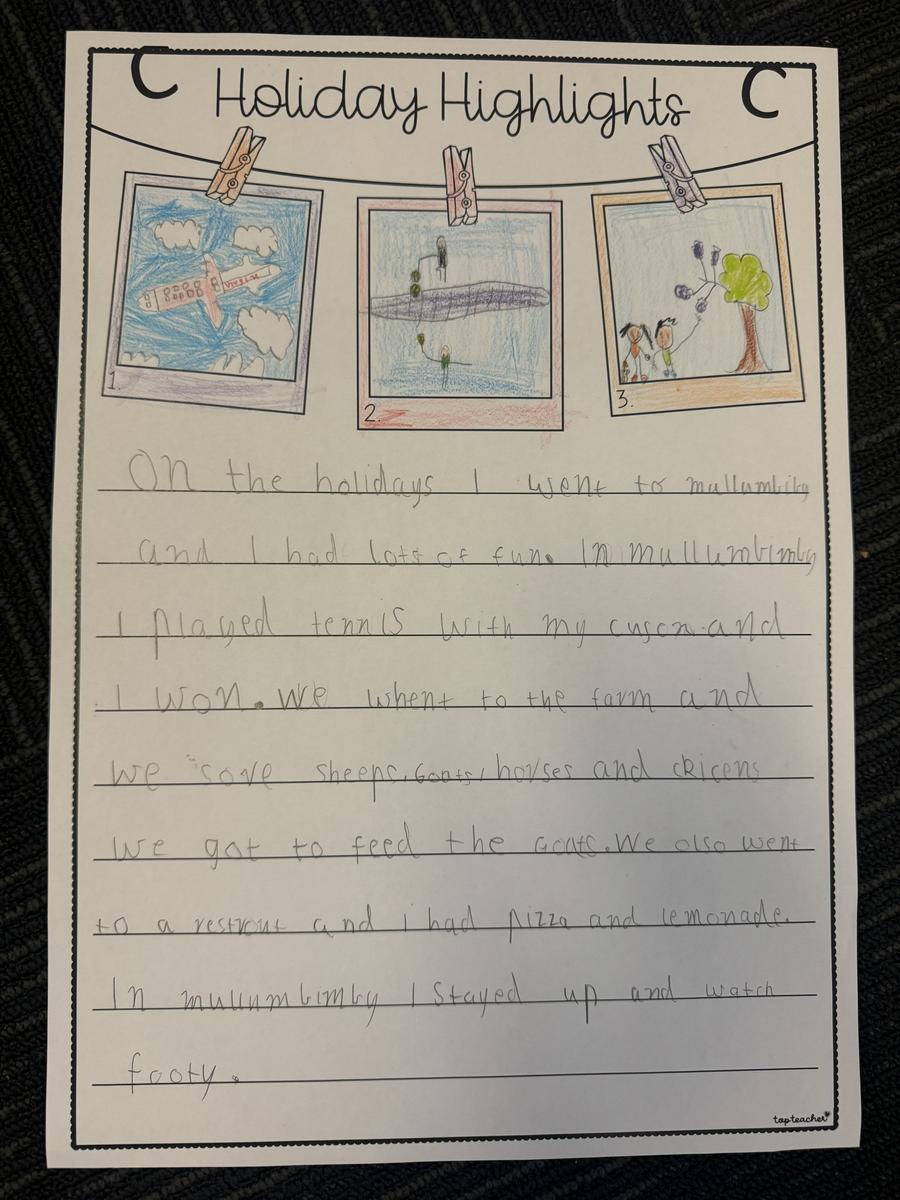 C Holiday Highlights C
1.
2.
3.
On the holidays I went to
and I had lots of fun. In mullumbimby
I played tennis with my cuson and
I won. We whent to the farm and
We sove sheeps, Goats, horses and chicens
We got to feed the Goats. We also went
to a restront and i had pizza and lemonade.
In mullumbimby I stayed up and watch
footy.
tapteacher